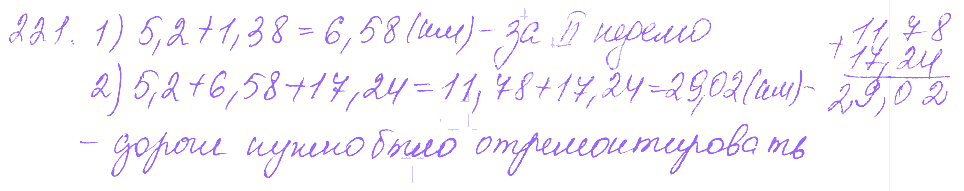 221. 1) 5,2+1,38=6,58(км)-за II неделю
2) 5,2+6,58+17,24=11,78+17,24=29,02(км)-
- дороги нужно было отремонтировать
11,78
+ 17,24
29,02